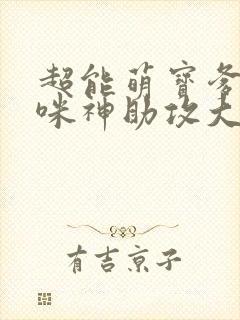 超能萌寶爹
咪神助攻大
有吉京子